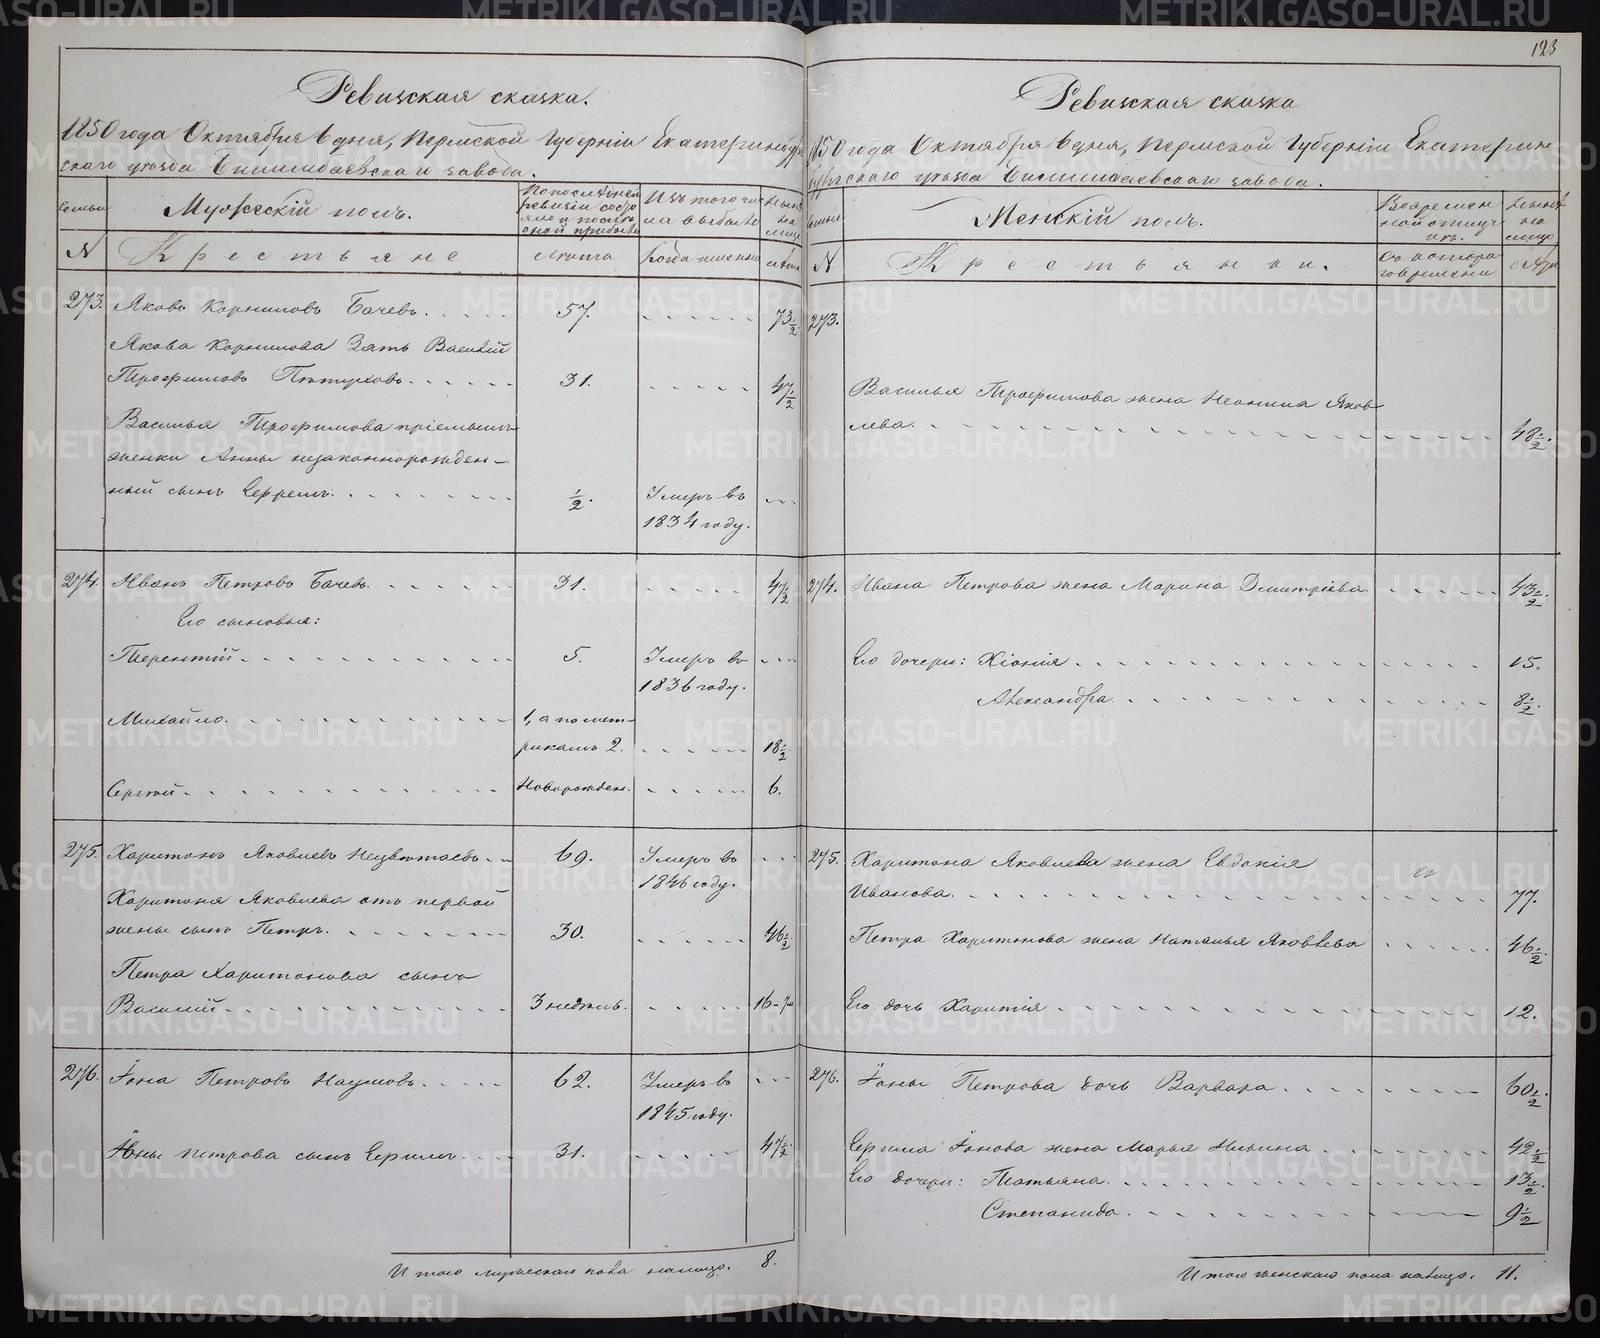 123
Ревизская сказка.
1850 года Октября 6 дня, Пермской Губерніи Екатеринбур
скаго уѣзда Билимбаевскаго завода.
Семьи
Мужескій полъ.
По послѣдней ревизіи состояло и послѣ оной прибыло
Изъ того числа выбыло
Нынѣ на лицо
N
Крестьяне
Лѣта
Когда именно
Лѣта
273. Яковъ Корниловъ Бачевъ. 57. 73½
Якова Корнилова Зять Василій
Трофимовъ Пѣтуховъ. 31. 47½
Василья Трофимова пріемыш
женки Анны незаконнорожден-
ный сынъ Ефремъ. ½. Умеръ въ
1834 году.
274. Иванъ Петровъ Бачевъ. 31. 47½
Его сыновья:
Терентій. 5. Умеръ въ
1836 году.
Михайло. 1, а по мет-
рикамъ 2. 18½
Сергѣй. Новорожден. 6.
275. Харитонъ Яковлевъ 69. Умеръ въ
1846 году.
Харитона Яковлева отъ первой
жены сынъ Петръ. 30. 46½
Петра Харитонова сынъ
Василий. 3 недѣль. 16-
276. Іона Петровъ Наумовъ. 62. Умеръ въ
1845 году.
Іоны Петрова сынъ 31. 47½
Итого мужескаго пола налицо. 8.
Ревизская сказка
1850 года Октября 6 дня, Пермской Губерніи Екатерин
бургскаго уѣзда Билимбаевскаго завода.
Семьи
Женскій полъ.
Во временной отлучкѣ.
Нынѣ на лицо
N
Крестьянки.
Съ котораго времени
Лѣта
273.
Василья Трофимова жена Неонила Яков-
лева. 48½.
274. Ивана Петрова жена Марина Дмитріева. 43½.
Его дочери: Хіонія. 15.
Александра. 8½.
275. Харитона Яковлева жена Евдокія
Иванова. 77.
Петра Харитонова жена Наталья Яковлева 46½
Его дочь Харитія. 12.
276. Іоны Петрова дочь Варвара. 60½.
Іонова жена Марья Ильина. 42½
Его дочери: Татьяна. 13½.
Степанида. 9½
Итого женскаго пола налицо. 11.
METRIKI.GASO-URAL.RU